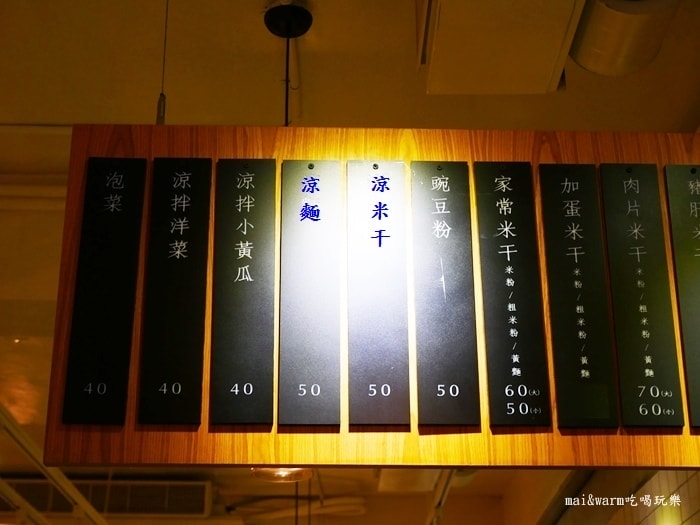 泡菜
40
涼拌洋菜
40
涼拌小黃瓜
40
涼麵
50
涼米干
50
豌豆粉
50
家常米干
米粉/粗米粉/黃麵
60(大)
50(小)
加蛋米干
米粉/粗米粉/黃麵
肉片米干
米粉/粗米粉/黃麵
70(大)
60(小)
mai&warm吃喝玩樂